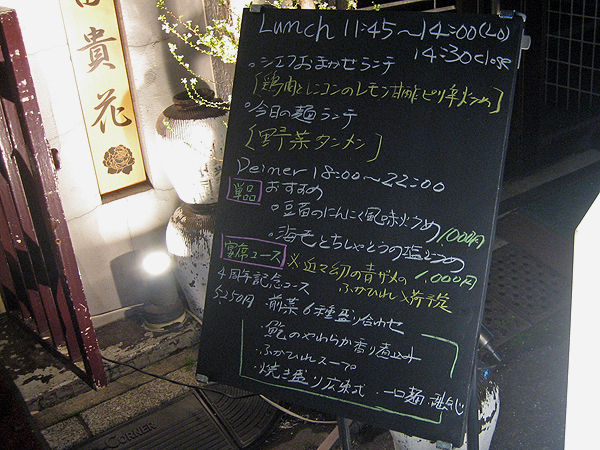 貴
花
Lunch 11:45~14:00(LO)
14:30close
○シェフおまかせランチ
[鶏肉とレンコンのレモン甘酢ピリ辛炒め]
○今日の麺ランチ
[野菜タンメン]
Deiner 18:00~22:00
単品 おすすめ
○豆苗のにんにく風味炒め 1,000円
○海老と の塩炒め
1,000円
宴席コース
ふかひれ入荷予定
4周年記念コース
5250円 前菜6種盛り合わせ
・鮑のやわらか香り煮込み
・ふかひれスープ
・焼き盛り広東式 ・一口麺
CORNER